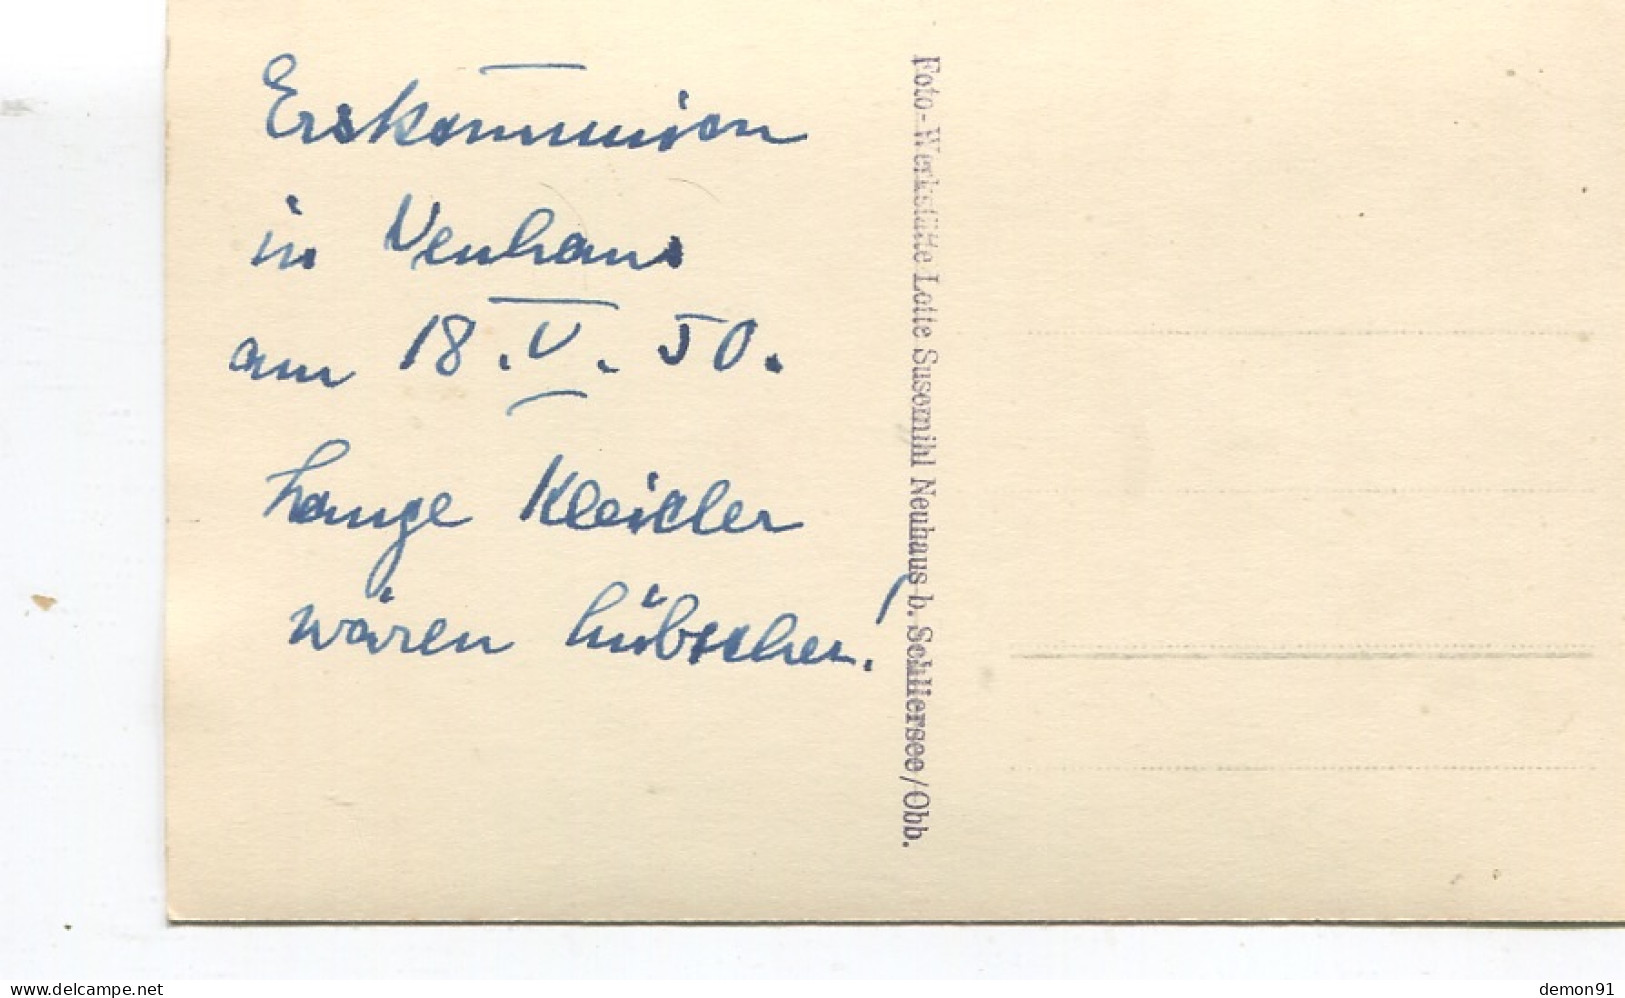 Erskommunion
in Neuhaus
am 18. V. 50.
Lange Kleider
wären hübscher!
Foto-Werkstätte Lotte Susemihl Neuhaus b. Schliersee/Obb.
www.delcampe.net
demon91